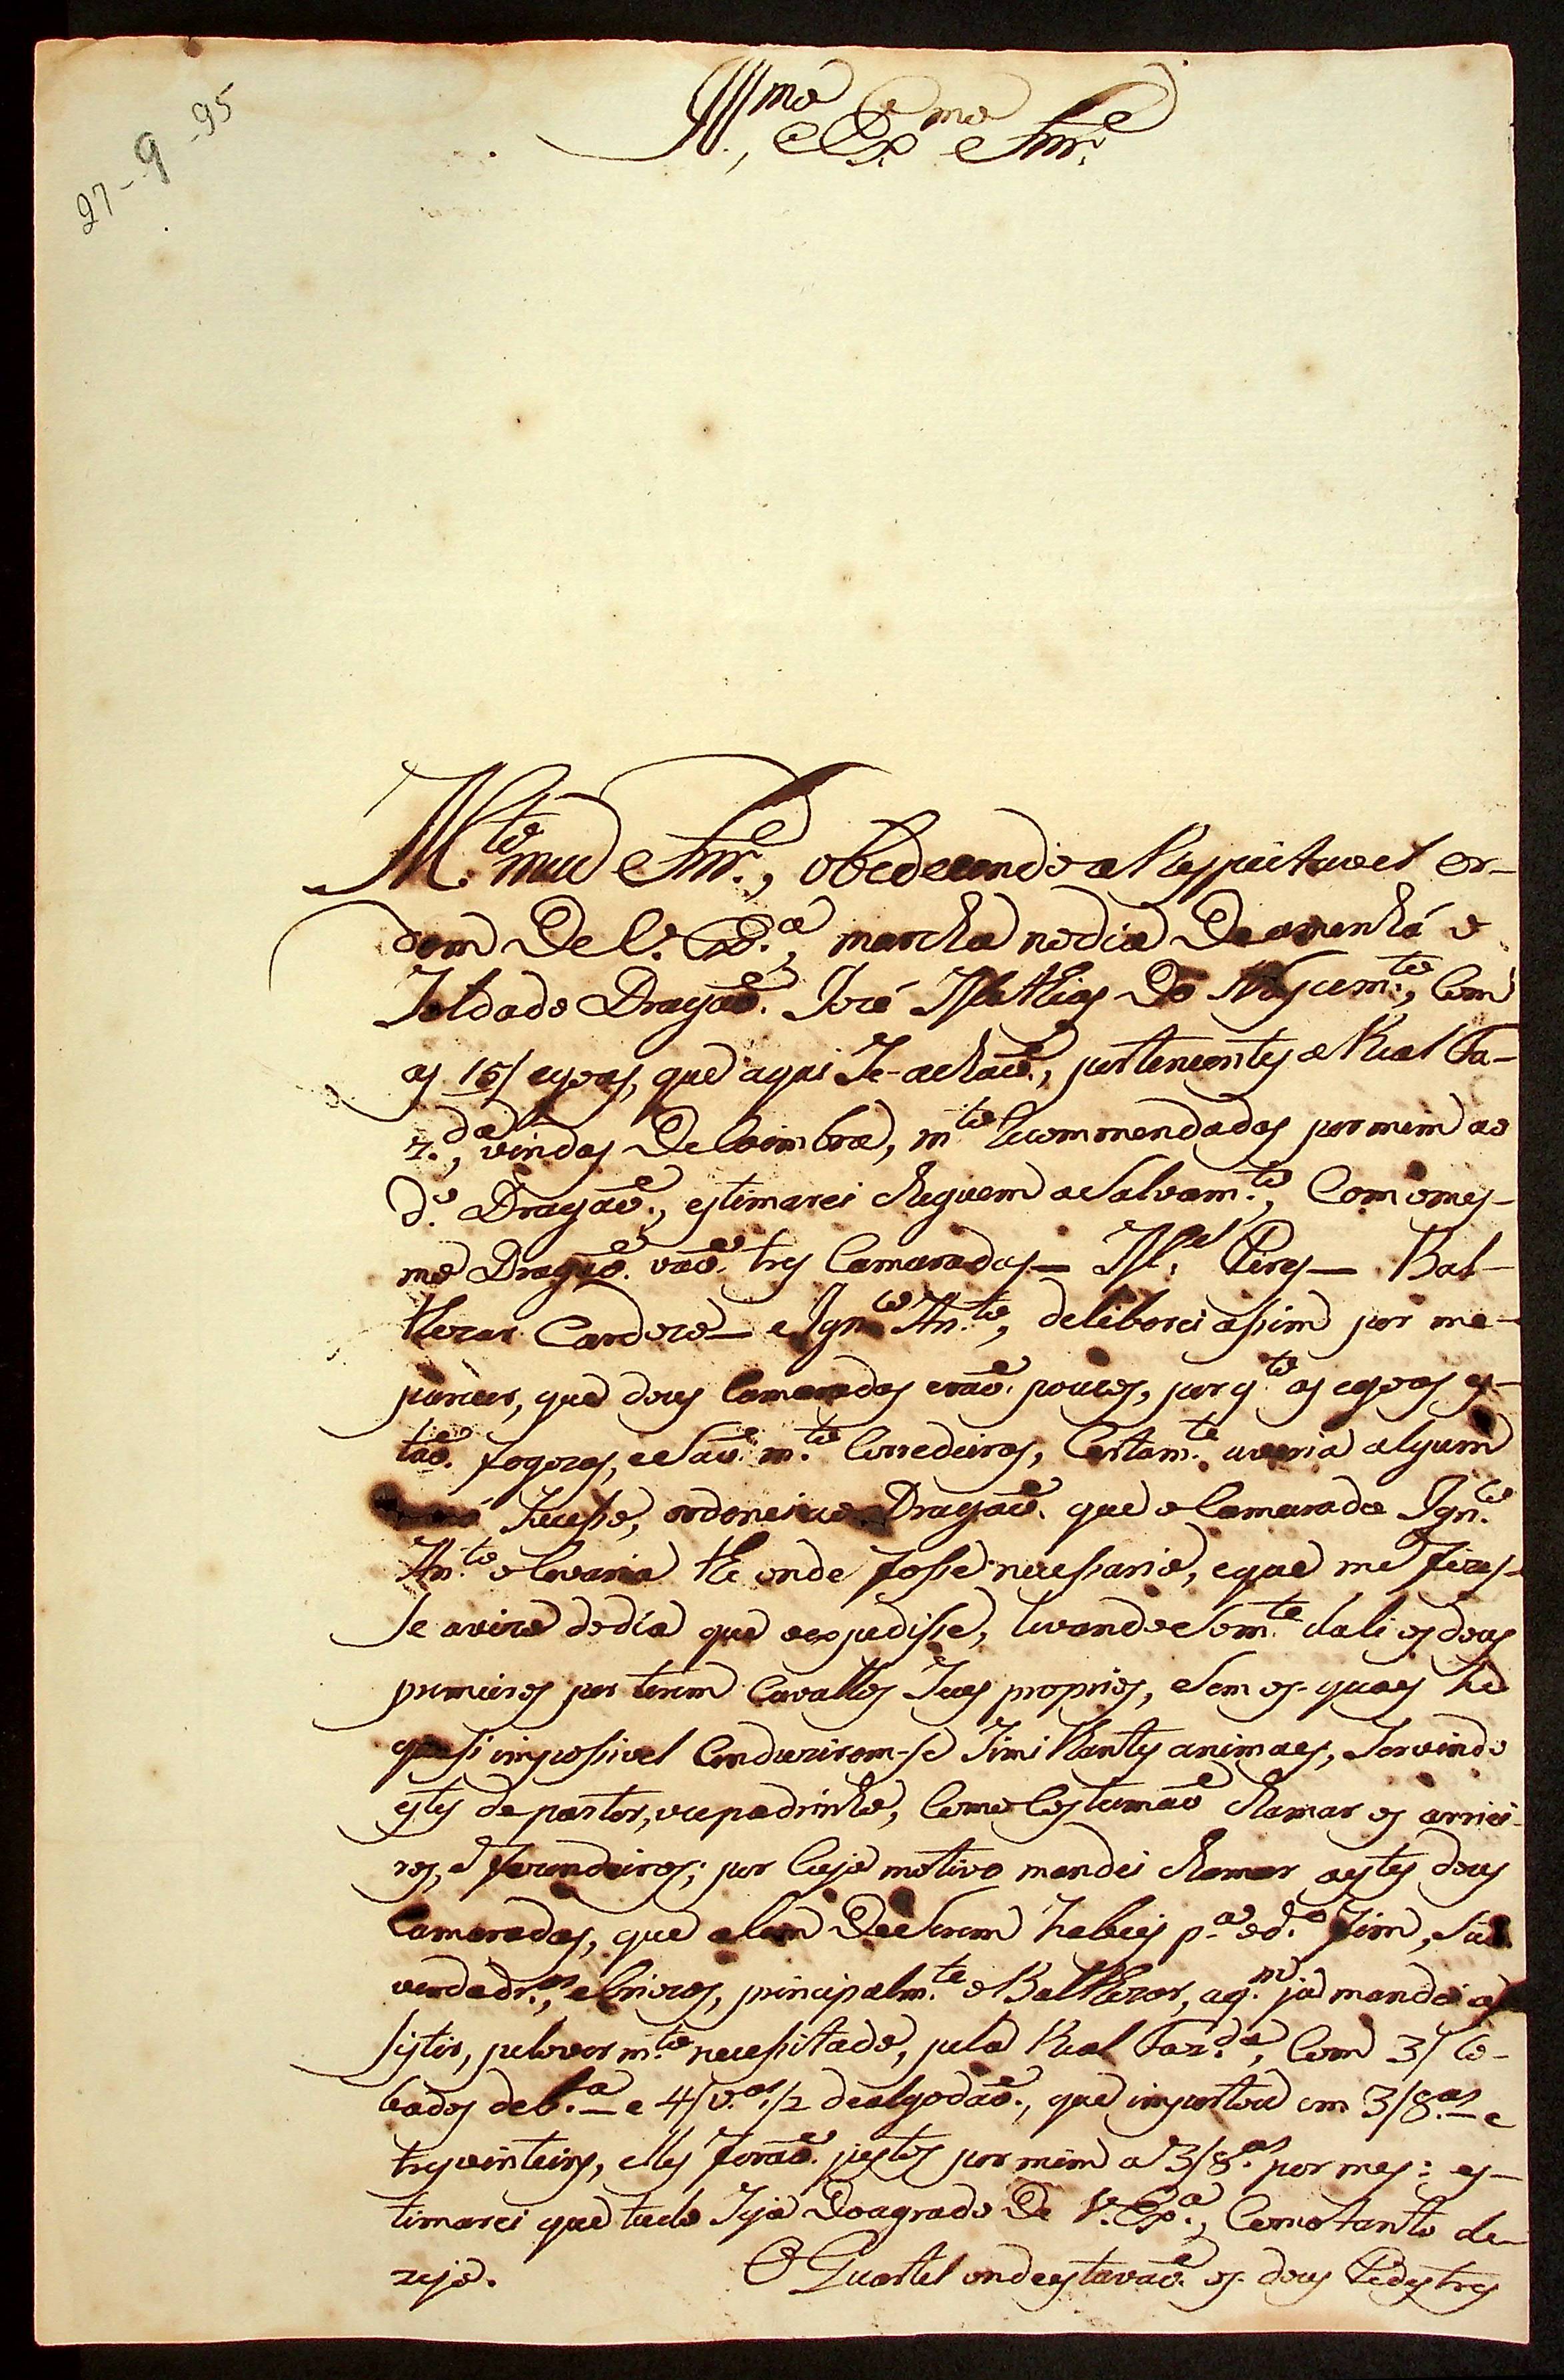 27-9-95
Ill.mo, e Ex.mo Snr.
M.to meu Snr., obedecendo a Respeitavel or-
dem De V. Ex.a, marcha no dia De amenhá o
Soldado Dragaõ. José Mathias Do Nascim.to, Com
as 15/ egoas, que aqui Se-achaõ., pertencentes a Real Fa-
z.da, vindas De Coimbra, m.to Recommendadas por mim ao
d.o Dragaõ., estimarei cheguem a Salvam.to, Com o mes-
mo Dragaõ. vaõ. tres Camaradas — M.el Pires — Bal-
thezar Cardozo — e Ign.co An.to, deliberei assim por me-
parecer, que dous Camaradas eraõ. poucos, por q.to as egoas es-
taõ. fogozas, e Saõ. m.to Corredeiras, Certam.te averia algum
Sucesso, ordenei ao Dragaõ. que o Camarada Ign.co
An.to o levaria thé onde fosse necessario, e que me fizes-
Se avizo do dia que o expedisse, levando Som.te dali os dous
primeiros por terem Cavallos Seus proprios, e Sem os-quaes hé
quasi impossivel Conduzirem-se Similhantes animaes, Servindo
estes de pastor, ou padrinho, Como Costumaõ chamar os arriei-
ros, e fazendeiros; por Cujo motivo mandei chamar a estes dous
Camaradas, que alem De Serem habeis p.a o d.o Fim, Saõ.
verdadr.os, e briozos, principalm.te o Balthezar, a q.m já mandei as
sistir, pelo ver m.to necessitado, pela Real Faz.da, Com 3/ Co-
vados de b.ta — e 4/v.as 1/2 de algodaõ., que importou em 3/8.as — e
tres vinteins, elles foraõ. justos por mim a 3/8.as por mes: es-
timarei que tudo Seja Do agrado De V. Ex.a, Como tanto de-
zejo. O Quartel onde estavaõ. os dous Pedestres